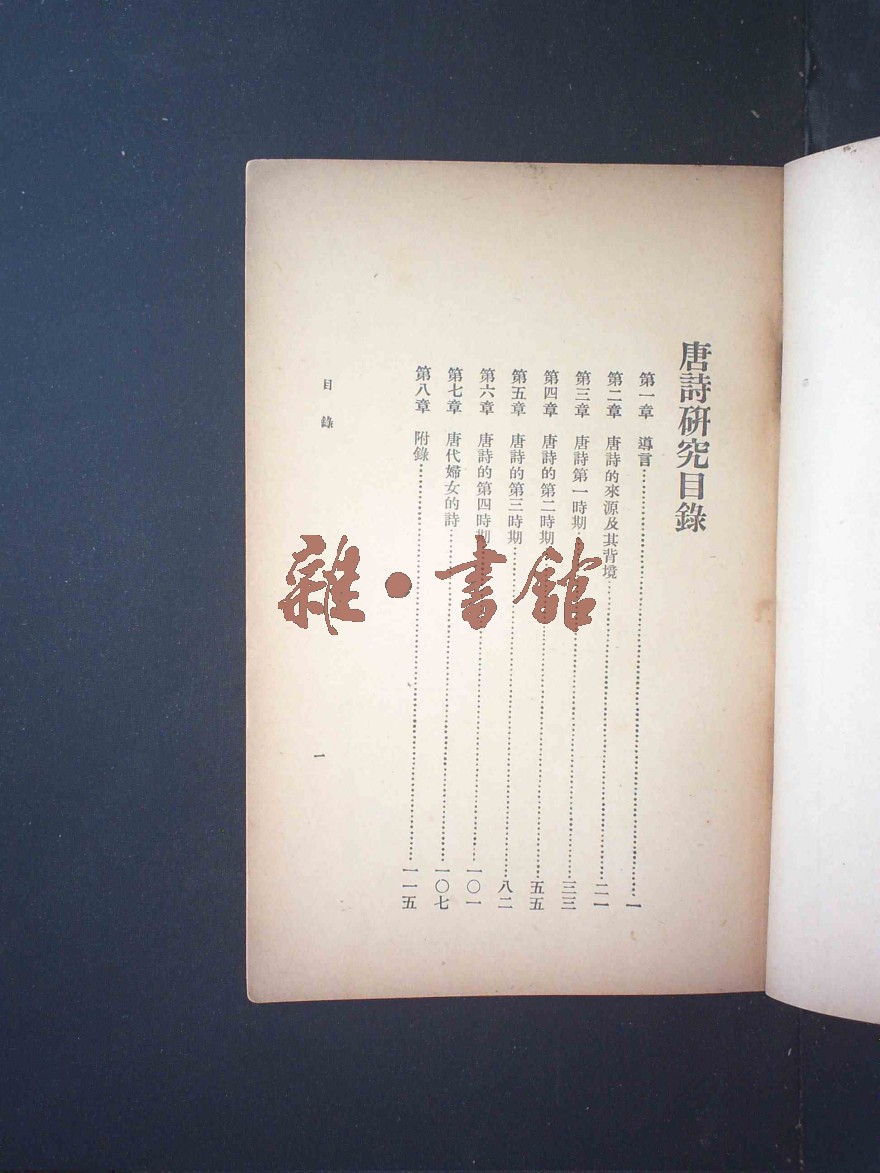 唐詩研究目錄
第一章 導言……一
第二章 唐詩的來源及其背境……二一
第三章 唐詩第一時期……三三
第四章 唐詩的第二時期……五五
第五章 唐詩的第三時期……八二
第六章 唐詩的第四時期……一〇一
第七章 唐代婦女的詩……一〇七
第八章 附錄……一一五
目錄
一
雜·書館